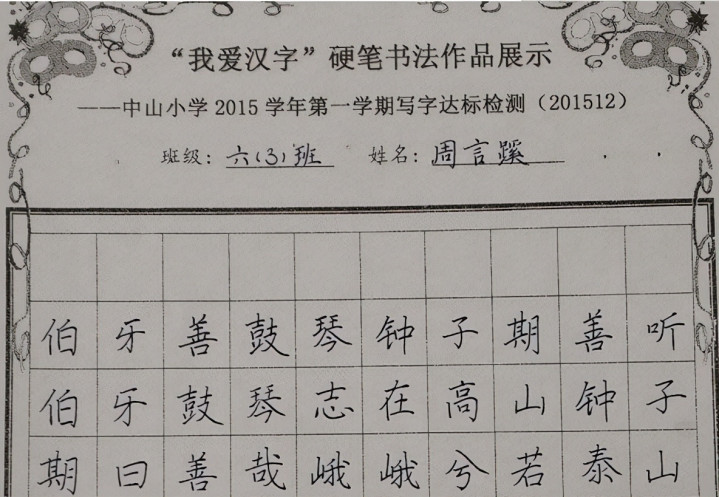 “我爱汉字”硬笔书法作品展示
——中山小学2015学年第一学期写字达标检测（201512）
班级：六(3)班 姓名：周言蹊
伯牙善鼓琴钟子期善听
伯牙鼓琴志在高山钟子
期曰善哉峨峨兮若泰山